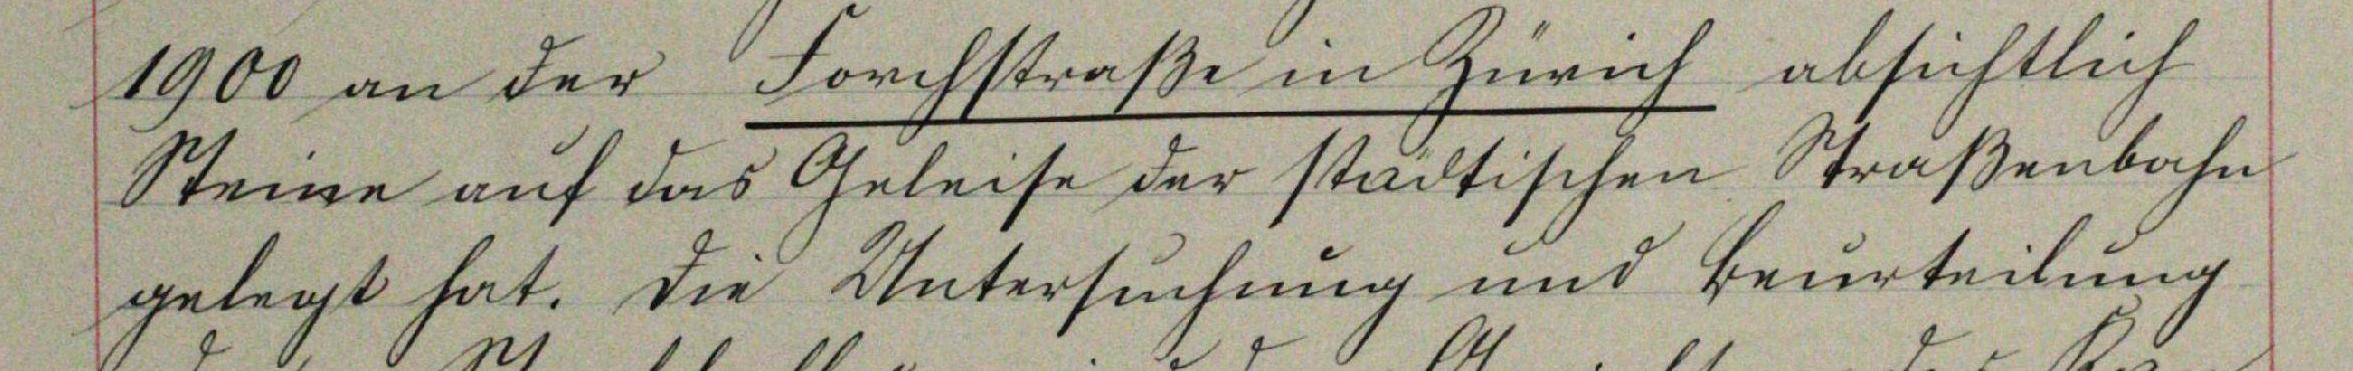 1900 an der Forchstraße in Zürich absichtlich
Steine auf das Geleise der städtischen Straßenbahn
gelegt hat. Die Untersuchung und Beurteilung